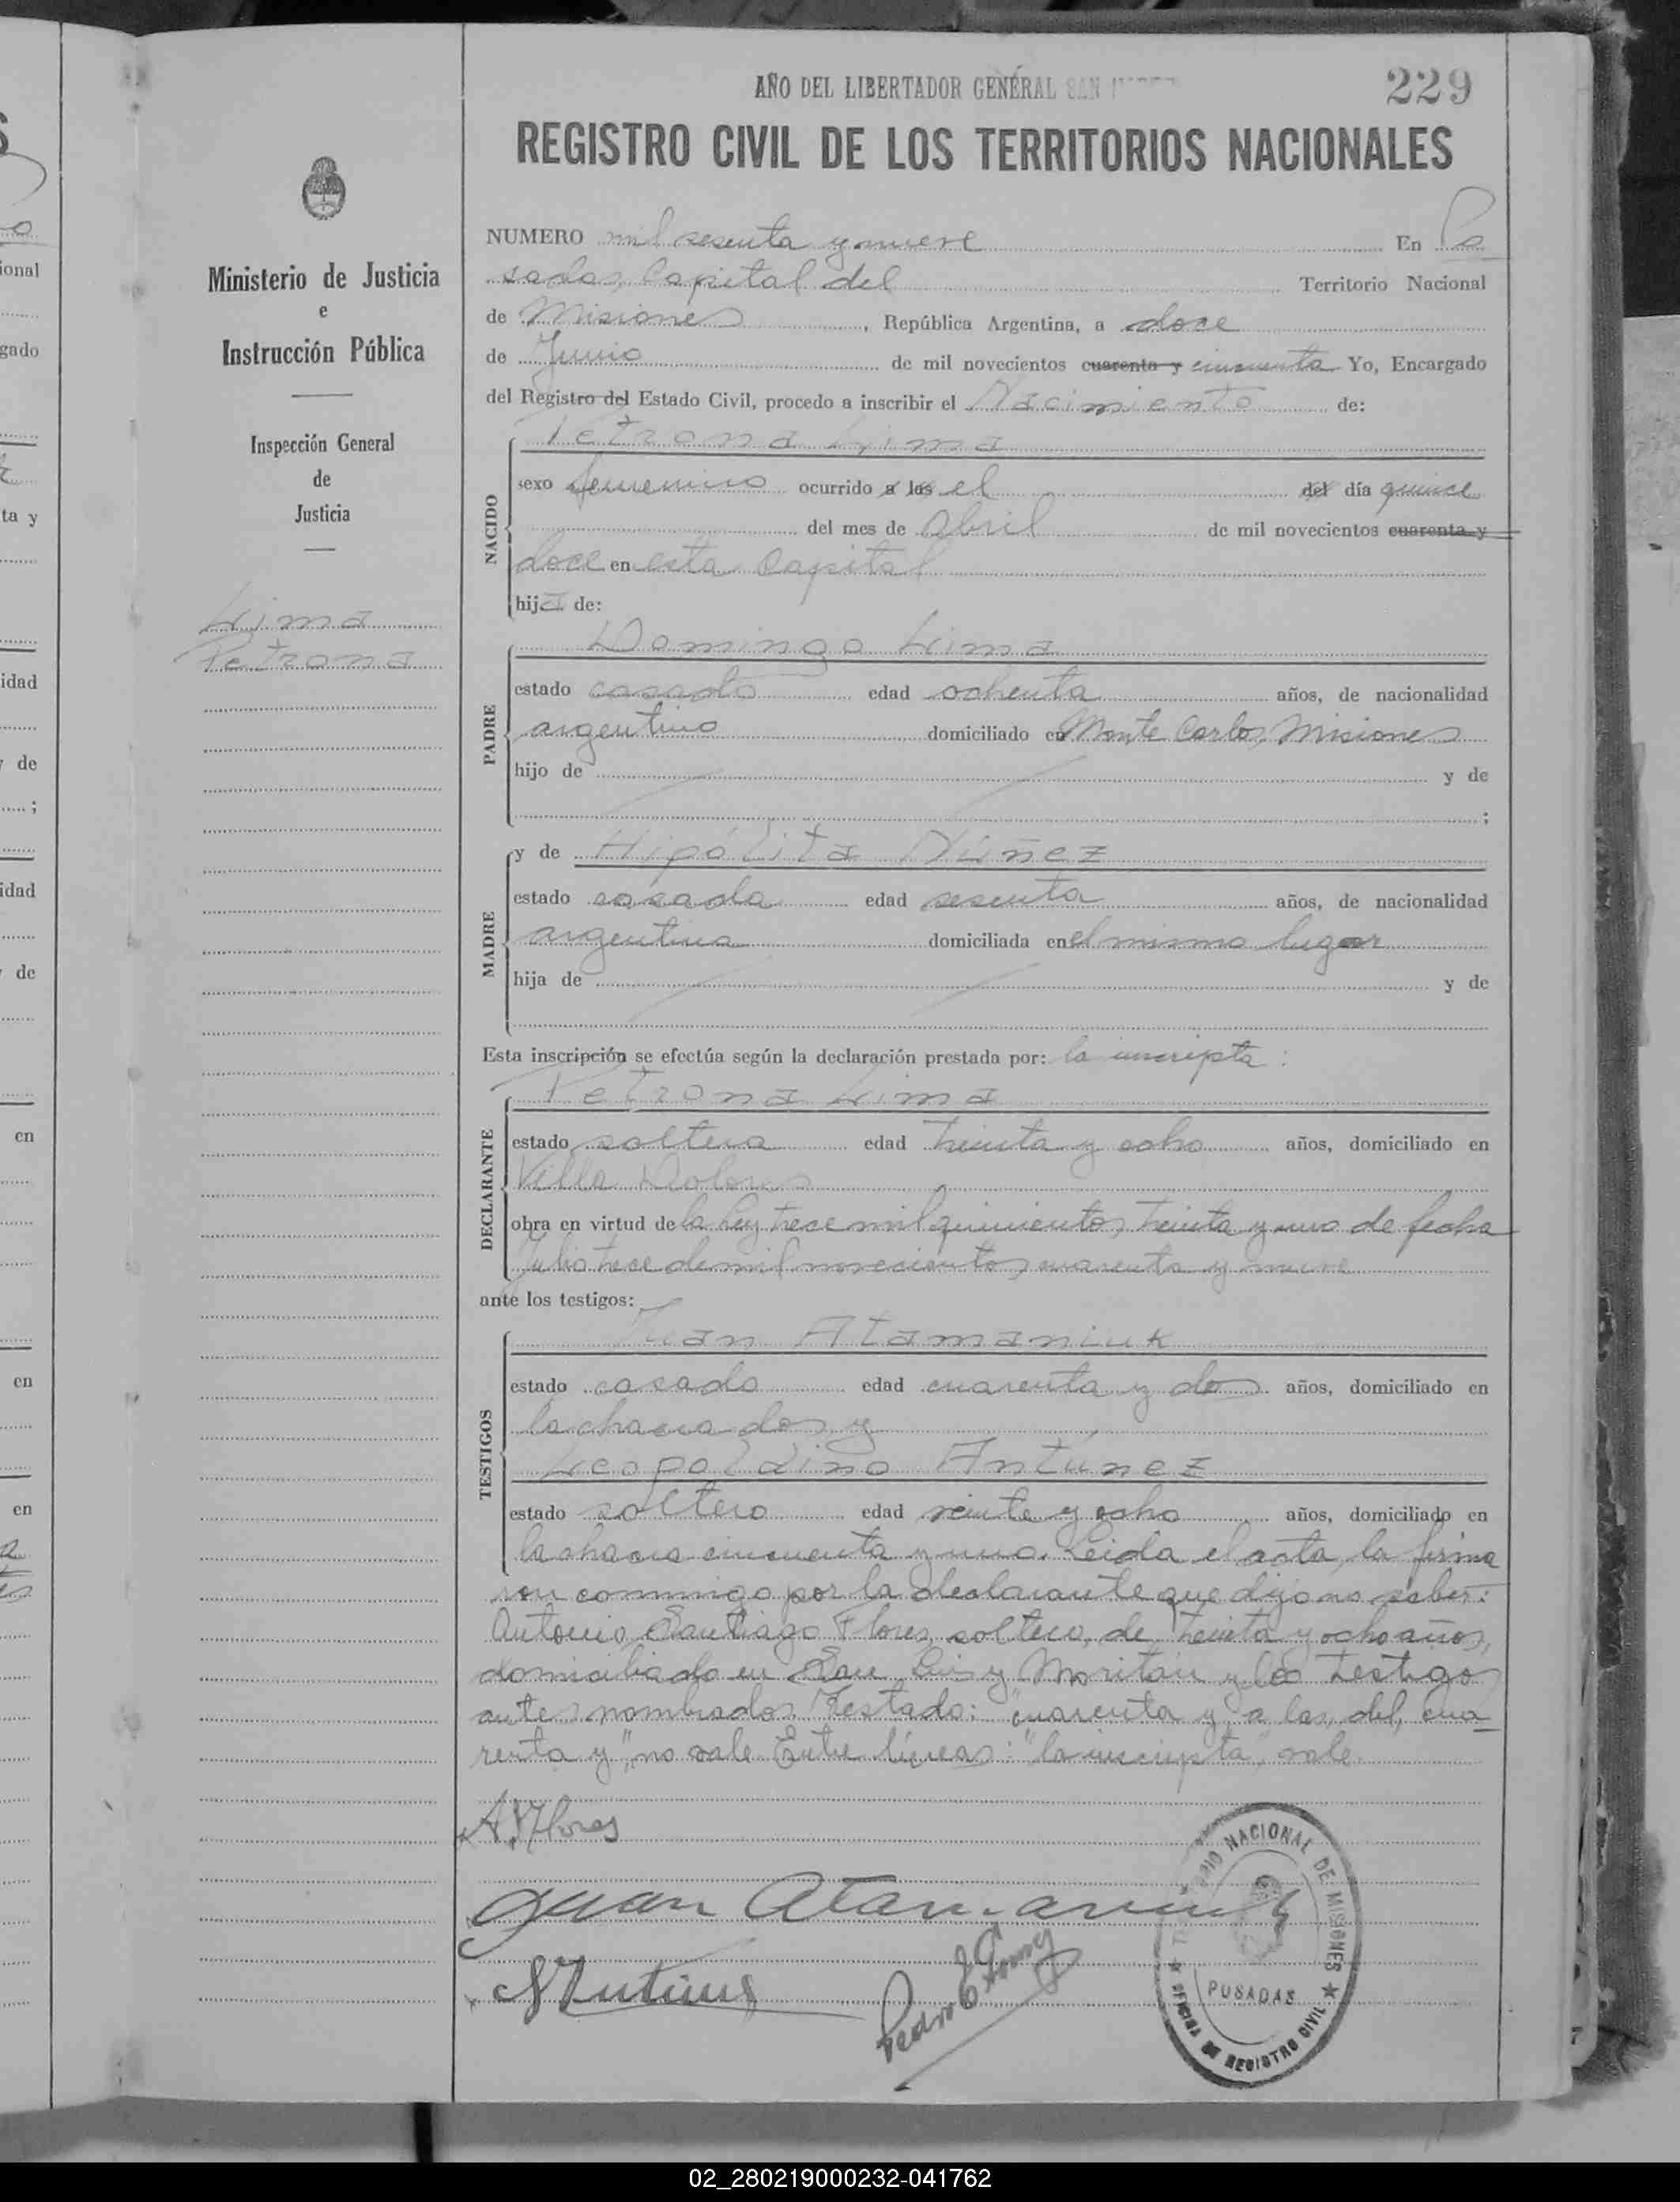 AÑO DEL LIBERTADOR GENERAL SAN
229
REGISTRO CIVIL DE LOS TERRITORIOS NACIONALES
Ministerio de Justicia
e
Instrucción Pública
Inspección General
de
Justicia
Lima
Petrona
NUMERO mil sesenta y nueve En Po
sadas, Capital del Territorio Nacional
de Misiones, República Argentina, a doce
de Junio de mil novecientos cuarenta y cincuenta Yo, Encargado
del Registro del Estado Civil, procedo a inscribir el Nacimiento de:
Petrona Lima
NACIDO
sexo femenino ocurrido a las el del día quince
del mes de abril de mil novecientos cuarenta y
doce en esta Capital
hija de:
Domingo Lima
PADRE
estado casado edad ochenta años, de nacionalidad
argentino domiciliado en Monte Carlos, Misiones
hijo de y de
;
y de Hipólita Núñez
MADRE
estado casada edad sesenta años, de nacionalidad
argentina domiciliada en el mismo lugar
hija de y de
Esta inscripción se efectúa según la declaración prestada por: la inscripta:
Petrona Lima
DECLARANTE
estado soltera edad treinta y ocho años, domiciliado en
Villa Dolores
obra en virtud de la Ley trece mil quinientos treinta y uno de fecha
Julio trece de mil novecientos cuarenta y nueve
ante los testigos:
Juan Atamaniuk
TESTIGOS
estado casado edad cuarenta y dos años, domiciliado en
la chacra dos y
Leopoldino Antúnez
estado soltero edad veinte y ocho años, domiciliado en
la chacra cincuenta y uno. Leida el acta, la firma
ron conmigo por la declarante que dijo no saber:
Antonio Santiago Flores, soltero, de treinta y ocho años,
domiciliado en San Luis y Moritán y los testigos
antes nombrados. Testado: "cuarenta y, a las, del, cua
renta y", no vale. Entre líneas: "la inscripta", vale.
A. S. Flores
Juan Atamaniuk
L Antúnez
Pedro E
TERRITORIO NACIONAL DE MISIONES
POSADAS
OFICINA DE REGISTRO CIVIL
ional
gado
ta y
idad
de
;
idad
de
en
en
en
02_280219000232-041762